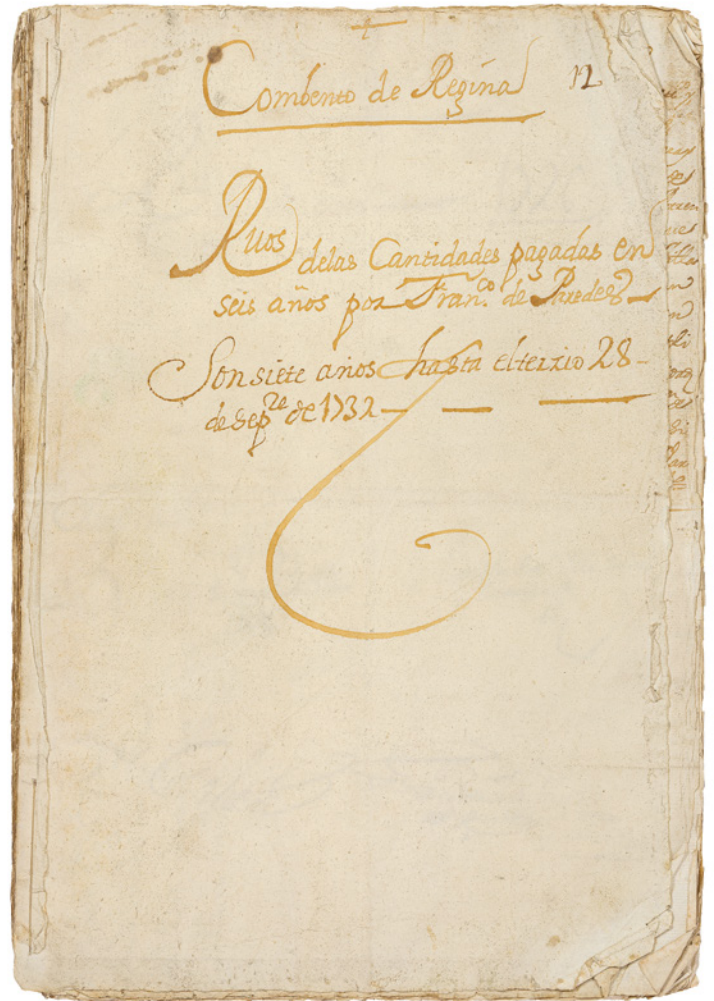 Combento de Regina
12
Rizos delas Cantidades pagadas en
seis años por Fran.co de Paredes
Son siete años hasta el terzio 28
de Sep.re de 1732